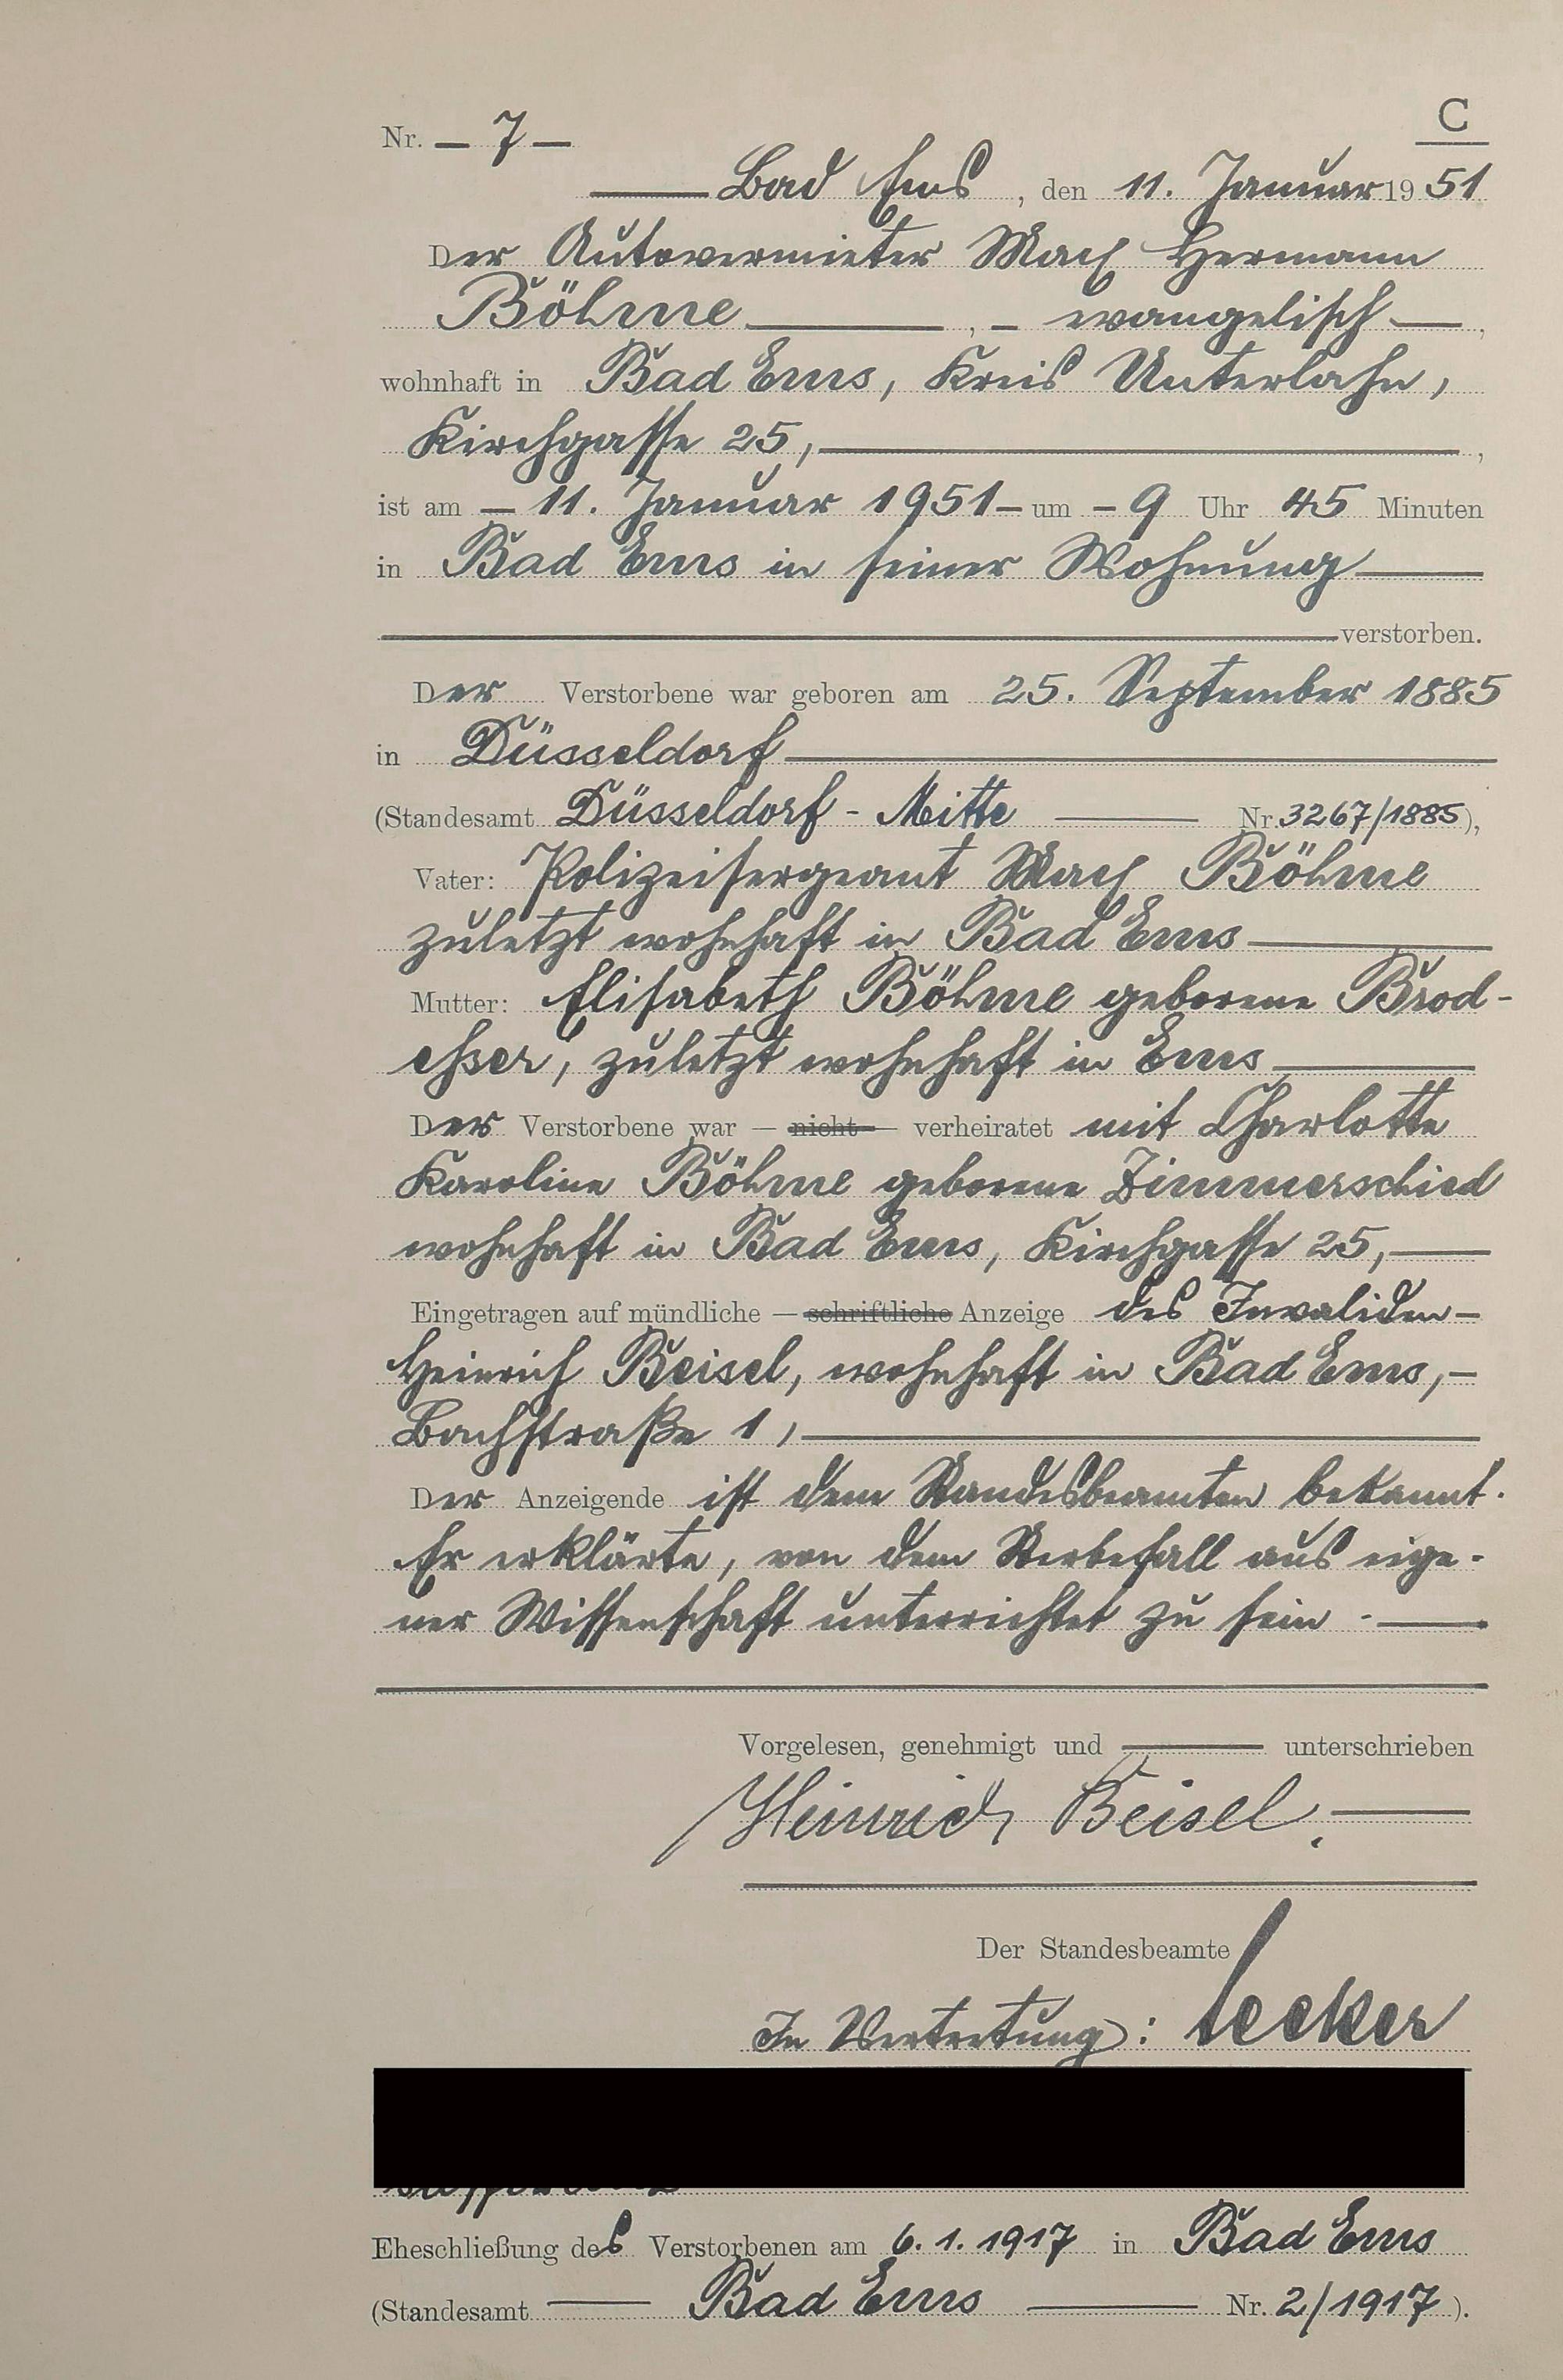 C
Nr. — 7 —
Bad Ems, den 11. Januar 1951
Der Autovermieter Max Hermann
Böhme, — evangelisch —,
wohnhaft in Bad Ems, Kreis Unterlahn,
Kirchgasse 25,
ist am — 11. Januar 1951 — um — 9 Uhr 45 Minuten
in Bad Ems in seiner Wohnung
verstorben.
Der Verstorbene war geboren am 25. September 1885
in Düsseldorf
(Standesamt Düsseldorf - Mitte — Nr. 3267/1885),
Vater: Polizeisergeant Max Böhme
zuletzt wohnhaft in Bad Ems
Mutter: Elisabeth Böhme geborene Brod-
esser, zuletzt wohnhaft in Ems
Der Verstorbene war — nicht — verheiratet mit Charlotte
Karoline Böhme geborene Zimmerschied
wohnhaft in Bad Ems, Kirchgasse 25,
Eingetragen auf mündliche — schriftliche Anzeige des Invaliden —
Heinrich Beisel, wohnhaft in Bad Ems, —
Bachstraße 1,
Der Anzeigende ist dem Standesbeamten bekannt.
Er erklärte, von dem Sterbefall aus eige-
ner Wissenschaft unterrichtet zu sein.
Vorgelesen, genehmigt und — unterschrieben
Heinrich Beisel.
Der Standesbeamte
In Vertretung:
Eheschließung des Verstorbenen am 6.1.1917 in Bad Ems
(Standesamt — Bad Ems — Nr. 2/1917).